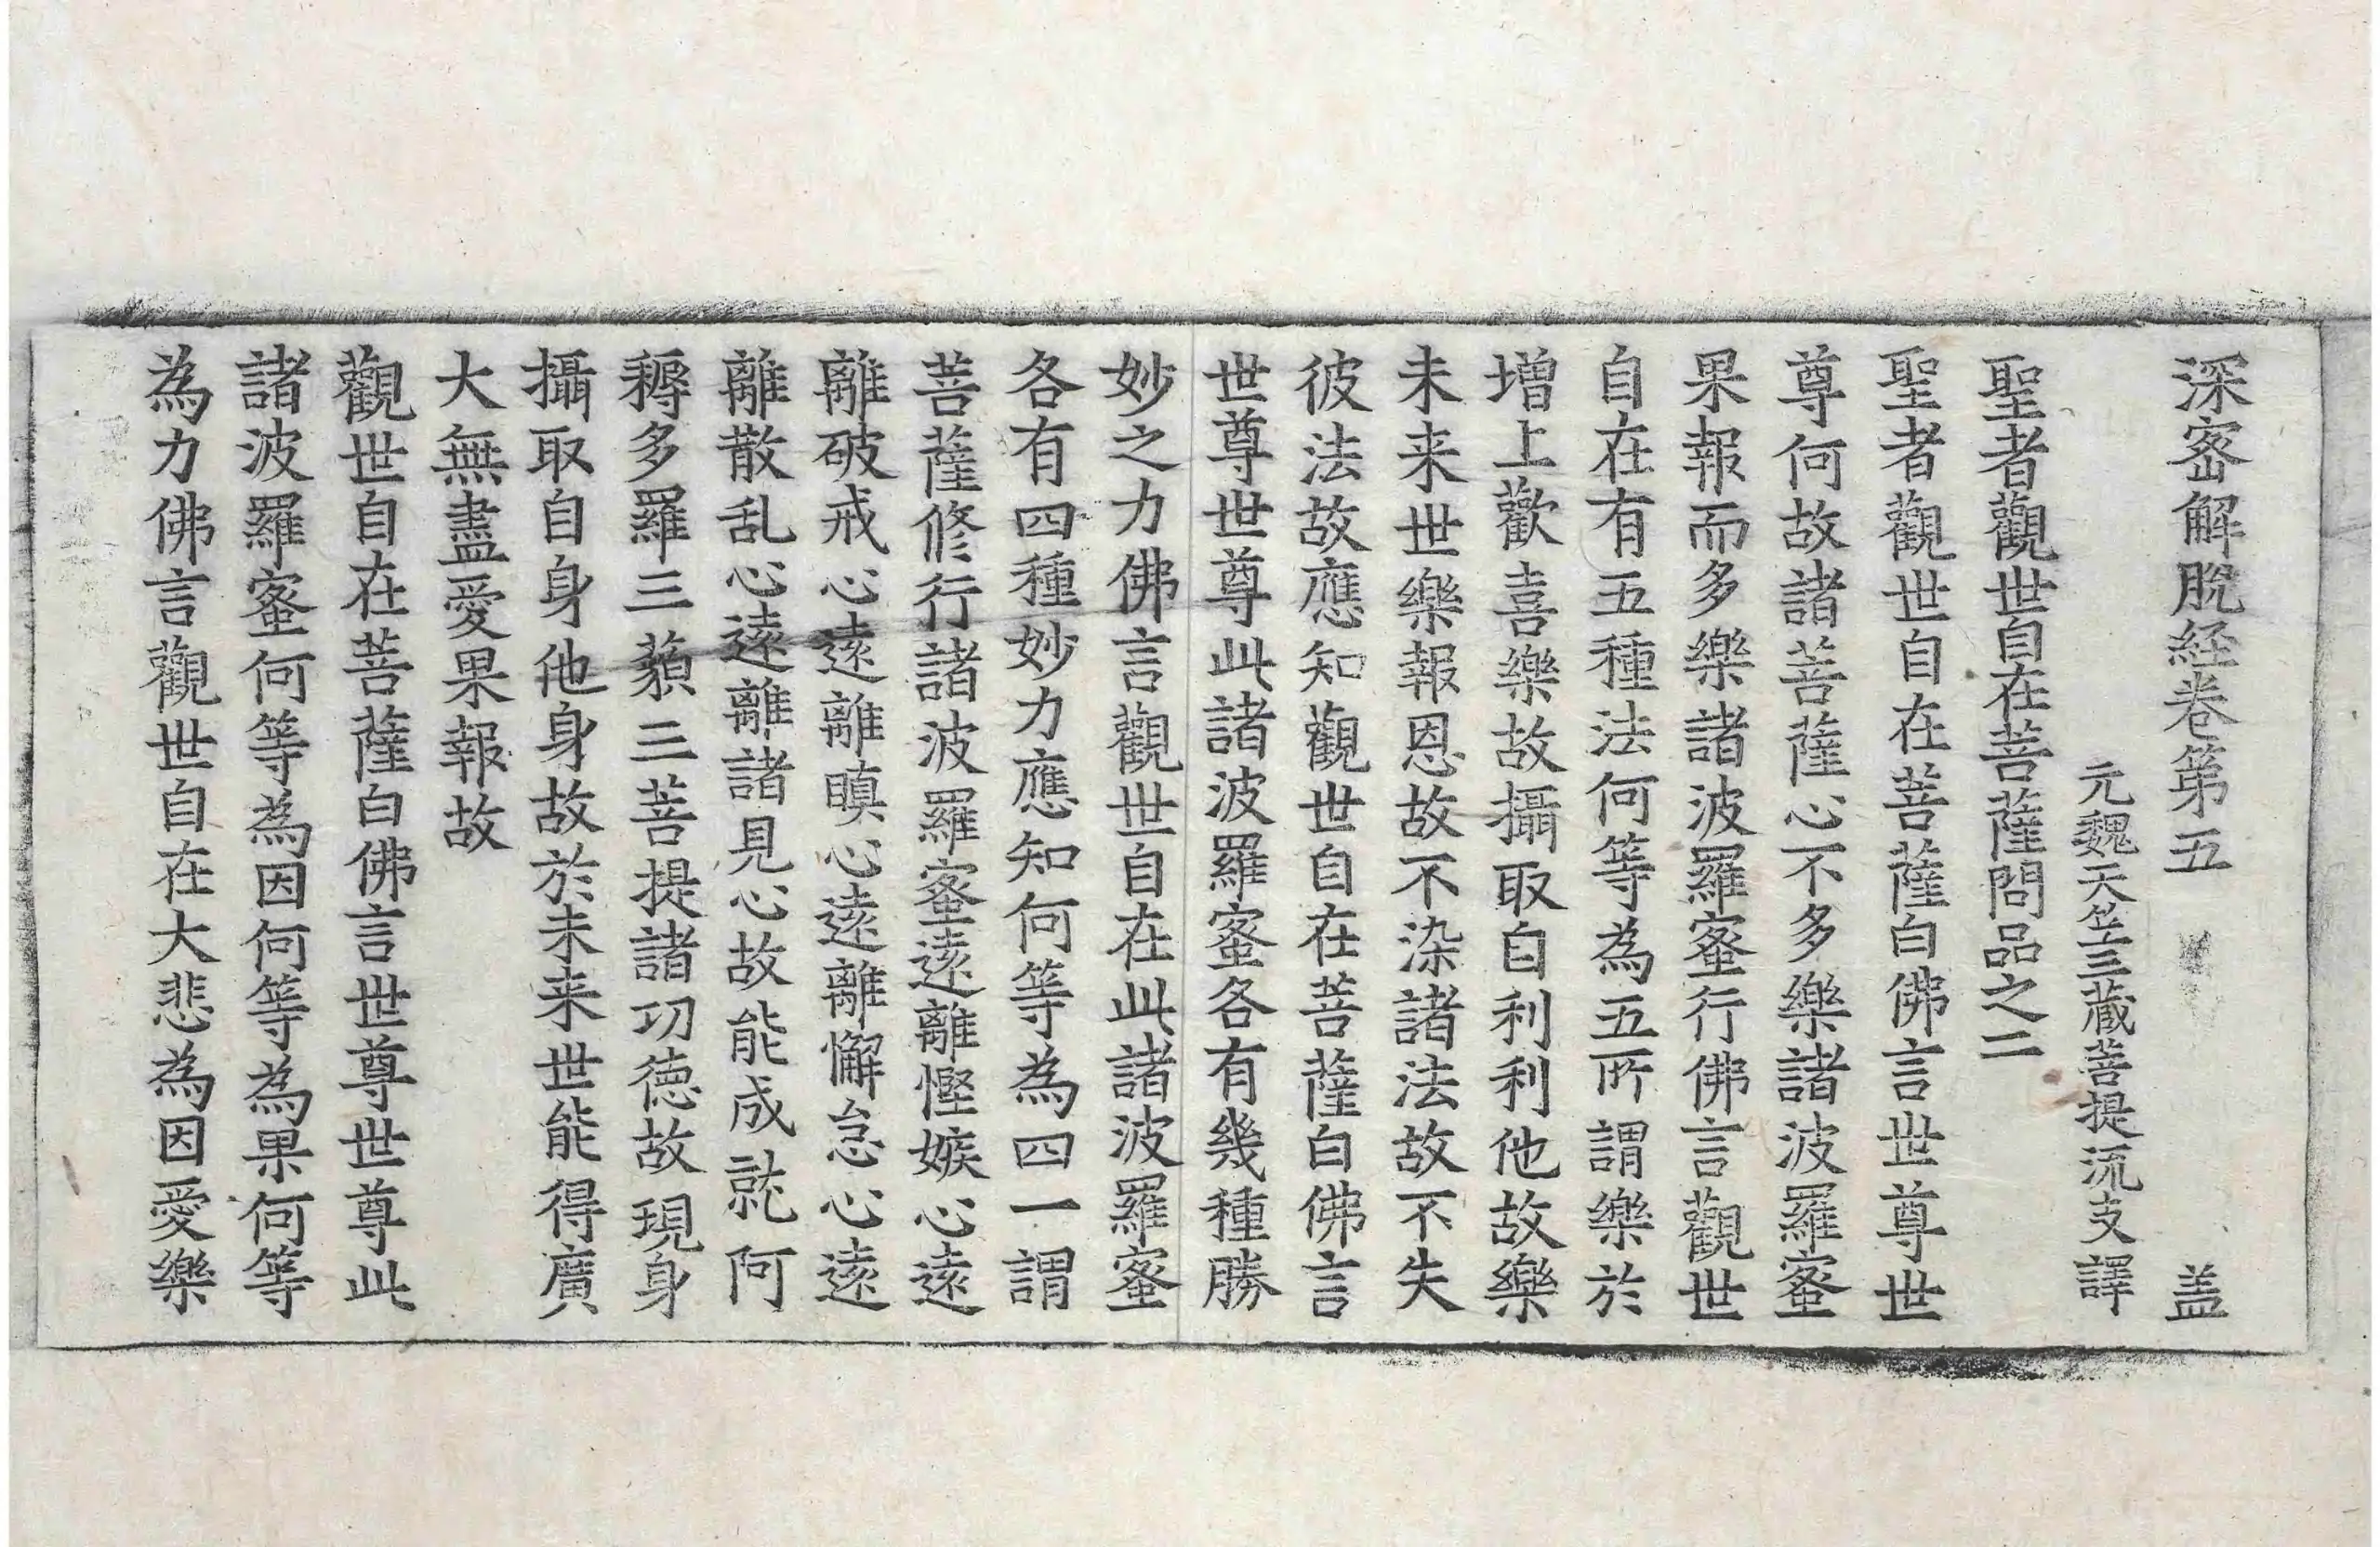 深宻解脫経卷第五 盖
元魏天竺三藏菩提流支譯
聖者觀世自在菩薩問品之二
聖者觀世自在菩薩白佛言世尊世
尊何故諸菩薩心不多樂諸波羅蜜
果報而多樂諸波羅蜜行佛言觀世
自在有五種法何等為五所謂樂於
增上歡喜樂故攝取自利利他故樂
未来世樂報恩故不染諸法故不失
彼法故應知觀世自在菩薩白佛言
世尊世尊此諸波羅蜜各有幾種勝
妙之力佛言觀世自在此諸波羅蜜
各有四種妙力應知何等為四一謂
菩薩修行諸波羅蜜遠離慳嫉心遠
離破戒心遠離瞋心遠離懈怠心遠
離散乱心遠離諸見心故能成就阿
耨多羅三藐三菩提諸功徳故現身
攝取自身他身故於未来世能得廣
大無盡愛果報故
觀世自在菩薩白佛言世尊世尊此
諸波羅蜜何等為因何等為果何等
為力佛言觀世自在大悲為因愛樂